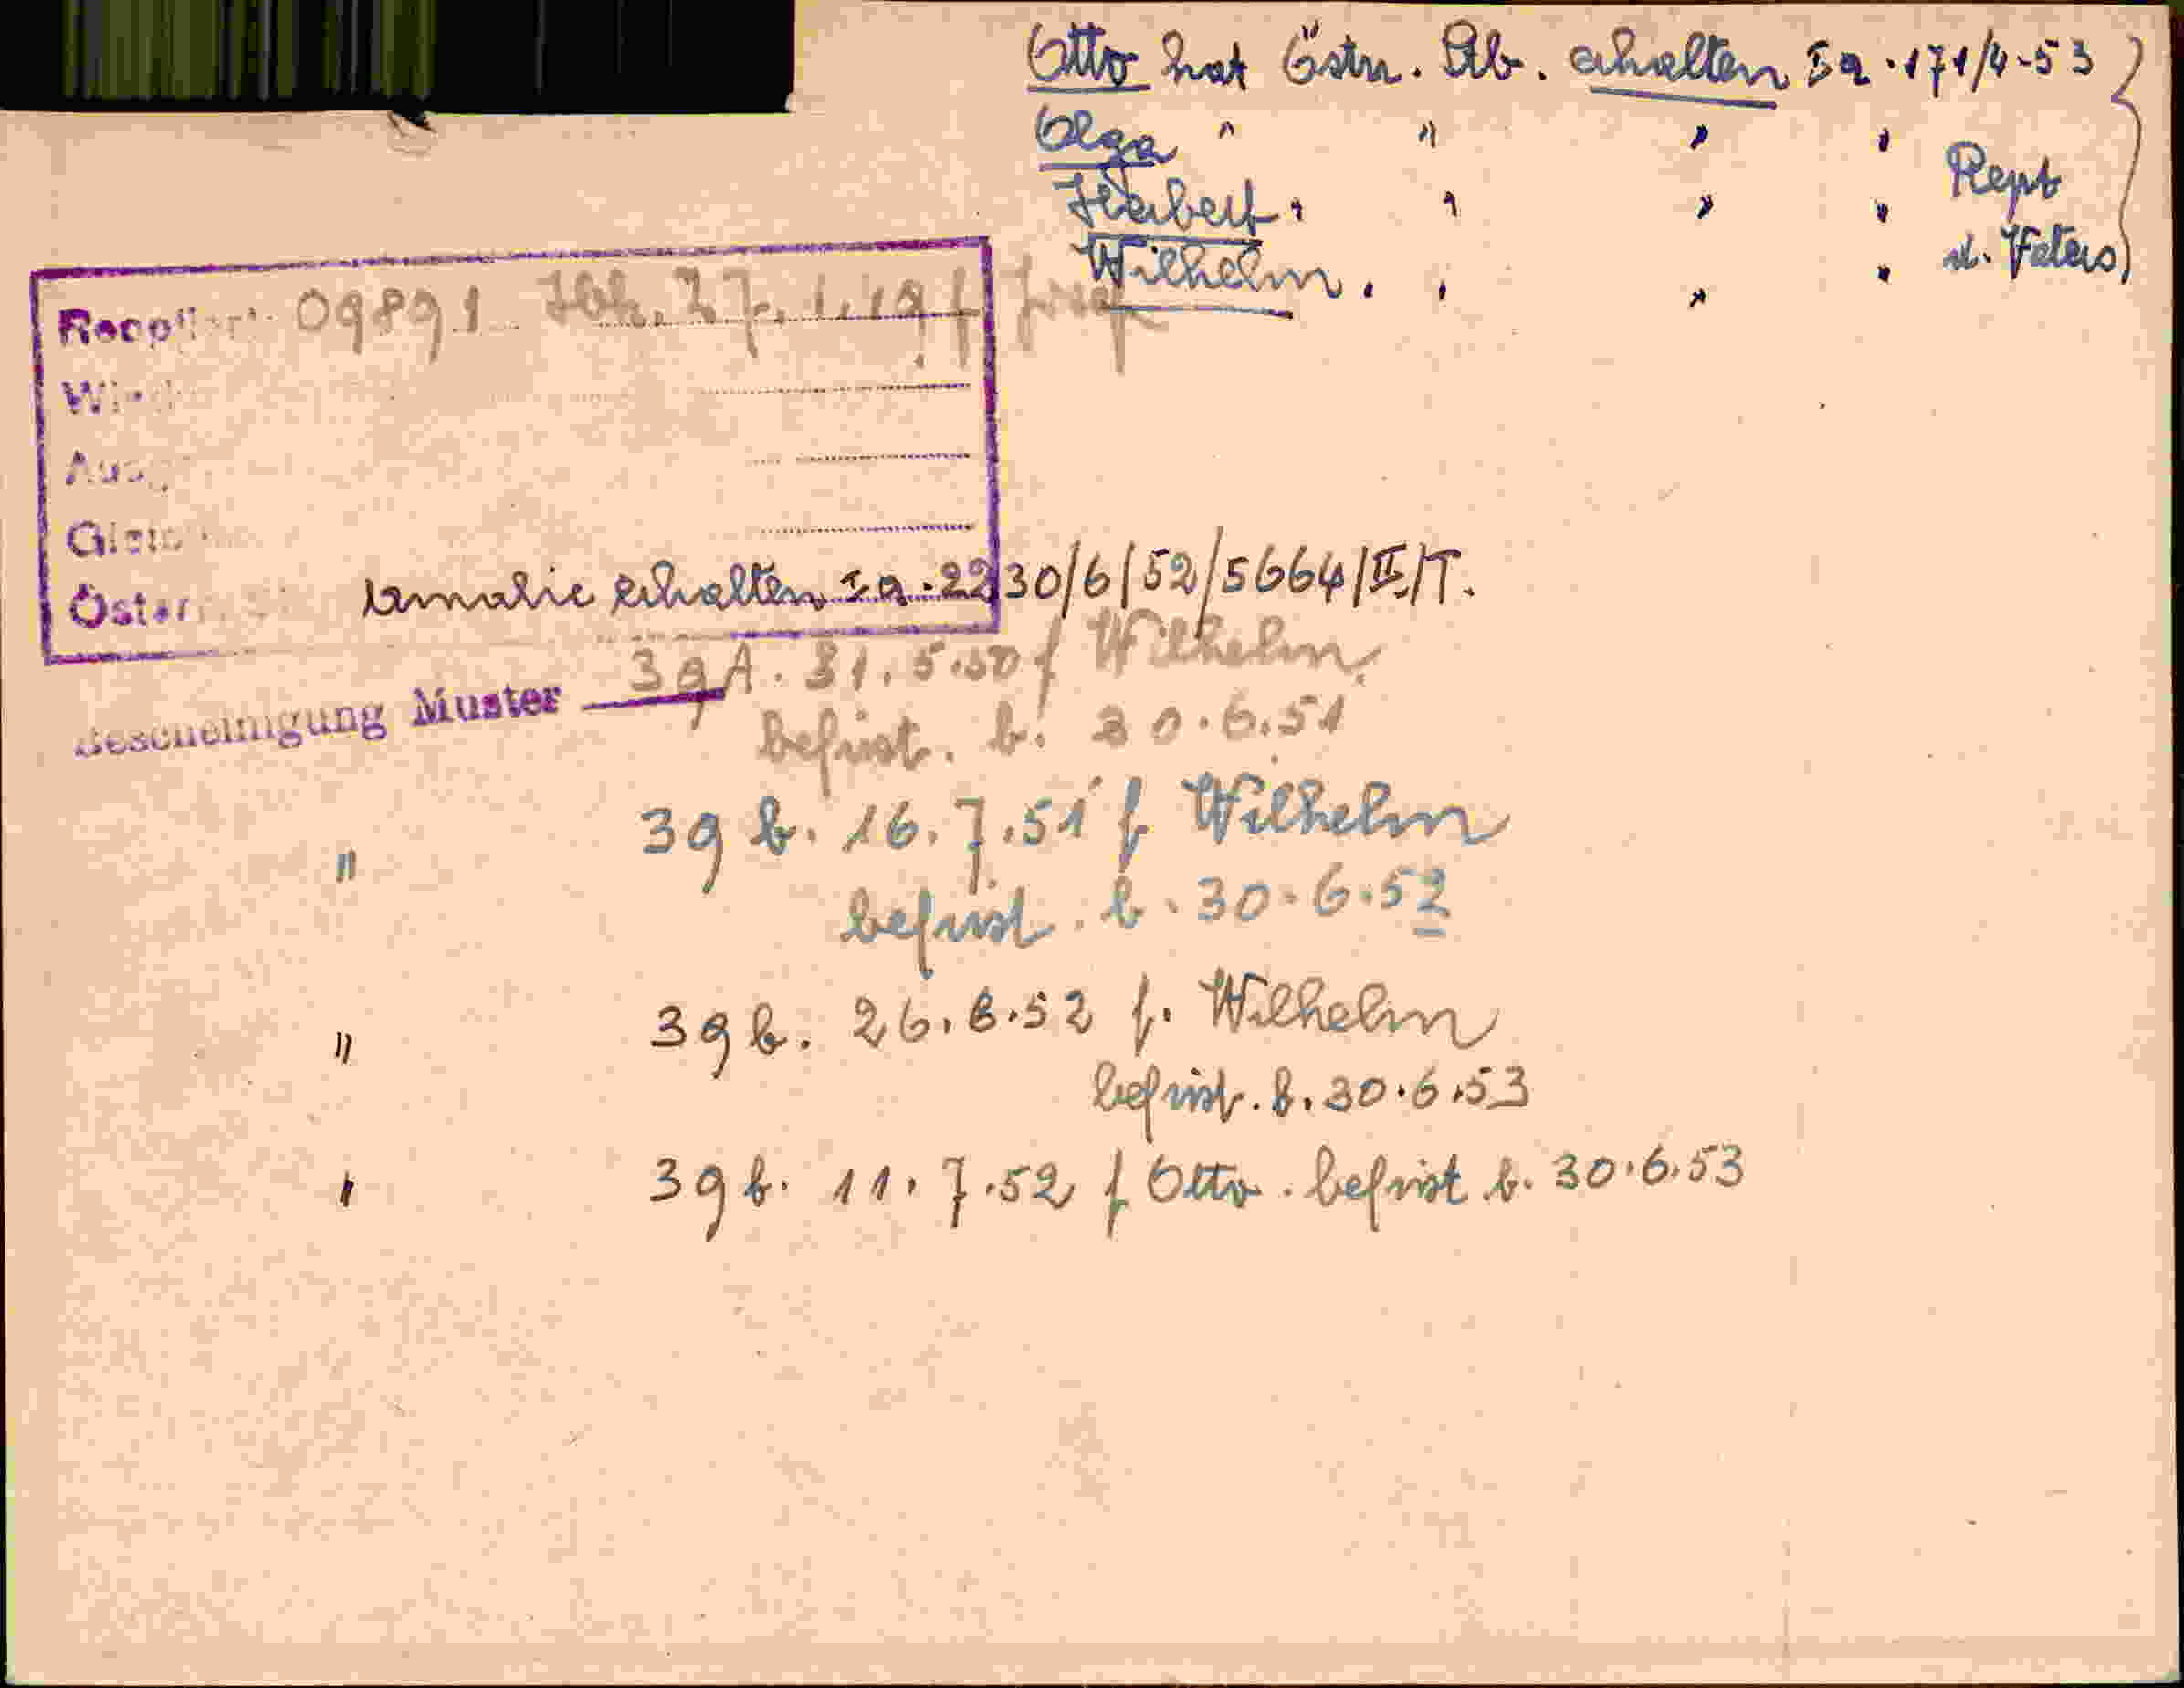 Otto hat Östr. Stb. erhalten Ia. 171/4-53
Olga " " " "
Herbert " " " " Rept
Wilhelm " " " " d. Vaters
09891 27.1.
Öster
Amalie erhalten Ia. 2230/6/52/5664/II/T.
Bescheinigung Muster 39A. 31.5.50 f Wilhelm
befrist. b. 30.6.51
" 39 b. 16.7.51 f Wilhelm
befrist. b. 30.6.52
" 39 b. 26.6.52 f. Wilhelm
befrist. b. 30.6.53
" 39 b. 11.7.52 f Otto. befrist b. 30.6.53